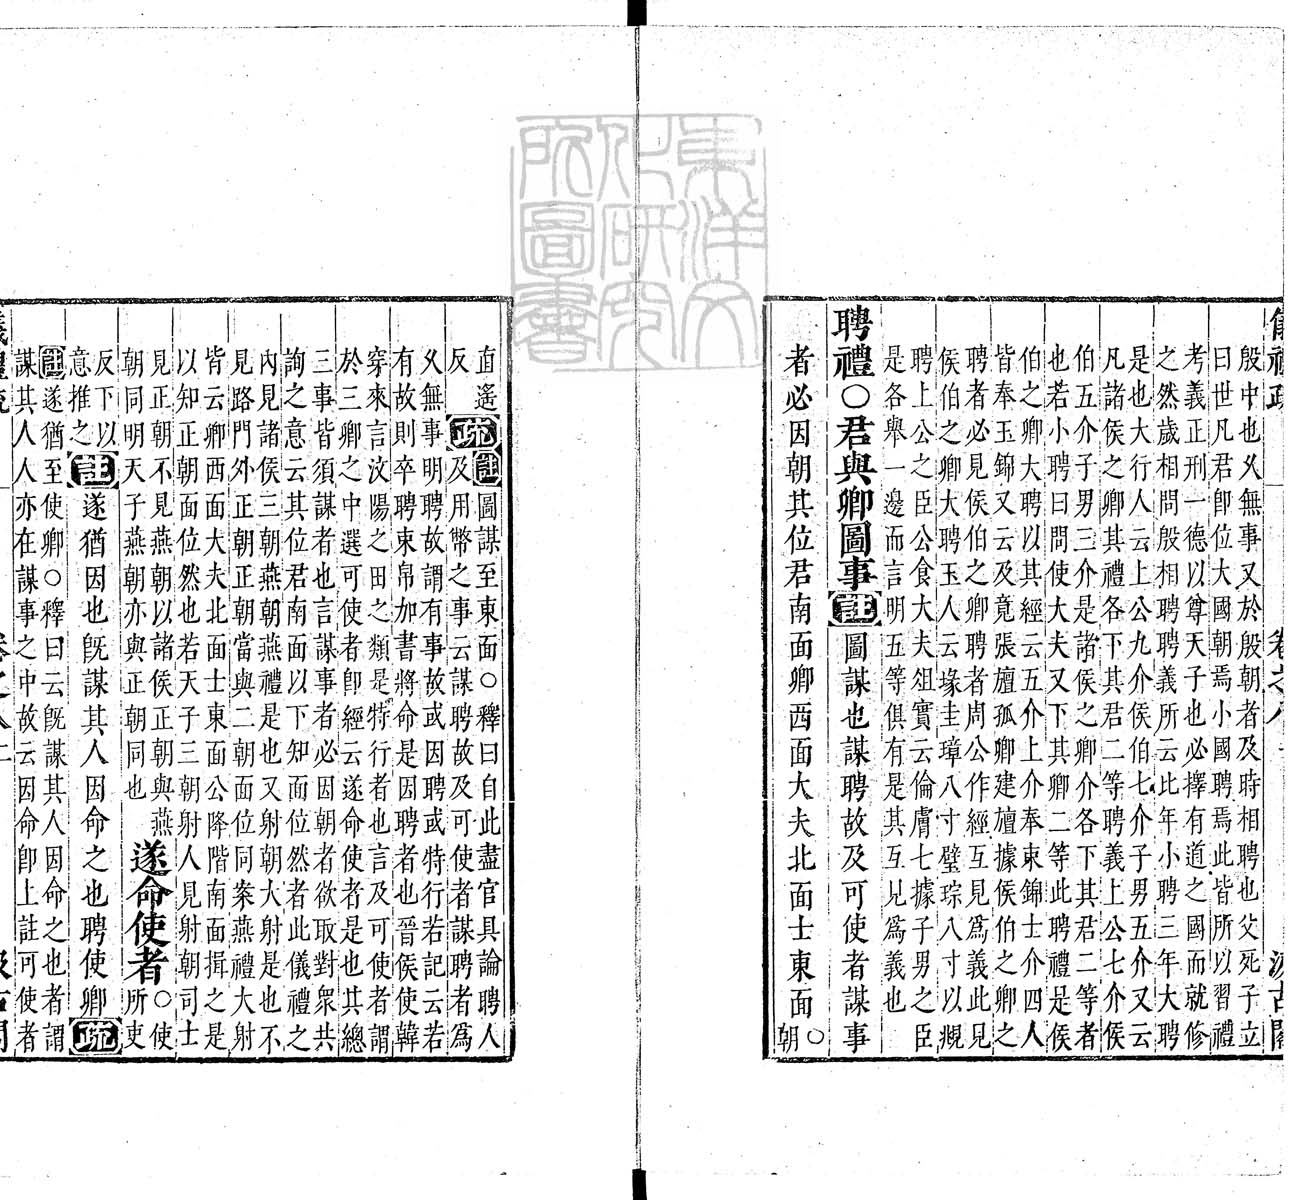 儀禮疏 卷之八 一 汲古閣
殷中也久無事又於殷朝者及時相聘也父死子立
曰世凡君卽位大國朝焉小國聘焉此皆所以習禮
考義正刑一德以尊天子也必擇有道之國而就修
之然歲相問殷相聘聘義所云比年小聘三年大聘
是也大行人云上公九介侯伯七介子男五介又云
凡諸侯之卿其禮各下其君二等聘義上公七介侯
伯五介子男三介是諸侯之卿介各下其君二等者
也若小聘曰問使大夫又下其卿二等此聘禮是侯
伯之卿大聘以其經云五介上介奉束錦士介四人
皆奉玉錦又云及竟張旜孤卿建旜據侯伯之卿之
聘者必見侯伯之卿聘者周公作經互見爲義此見
侯伯之卿大聘玉人云瑑圭璋八寸璧琮八寸以覜
聘上公之臣公食大夫俎實云倫膚七據子男之臣
是各舉一邊而言明五等俱有是其互見爲義也
聘禮○君與卿圖事註圖謀也謀聘故及可使者謀事
者必因朝其位君南面卿西面大夫北面士東面○
朝
直遥
反疏註圖謀至東面○釋曰自此盡官具論聘人
及用幣之事云謀聘故及可使者謀聘者爲
久無事明聘故謂有事故或因聘或特行若記云若
有故則卒聘束帛加書將命是因聘者也晉侯使韓
穿來言汶陽之田之類是特行者也言及可使者謂
於三卿之中選可使者卽經云遂命使者是也其總
三事皆須謀者也言謀事者必因朝者欲取對衆共
詢之意云其位君南面以下知面位然者此儀禮之
內見諸侯三朝燕朝燕禮是也又射朝大射是也不
見路門外正朝正朝當與二朝面位同案燕禮大射
皆云卿西面大夫北面士東面公降階南面揖之是
以知正朝面位然也若天子三朝射人見射朝司士
見正朝不見燕朝以諸侯正朝與燕
朝同明天子燕朝亦與正朝同也遂命使者○使
所吏
反下以
意推之註遂猶因也旣謀其人因命之也聘使卿疏
註遂猶至使卿○釋曰云旣謀其人因命之也者謂
謀其人人亦在謀事之中故云因命卽上註可使者
儀禮疏 卷之八 二 汲古閣
東洋文化研究所圖書